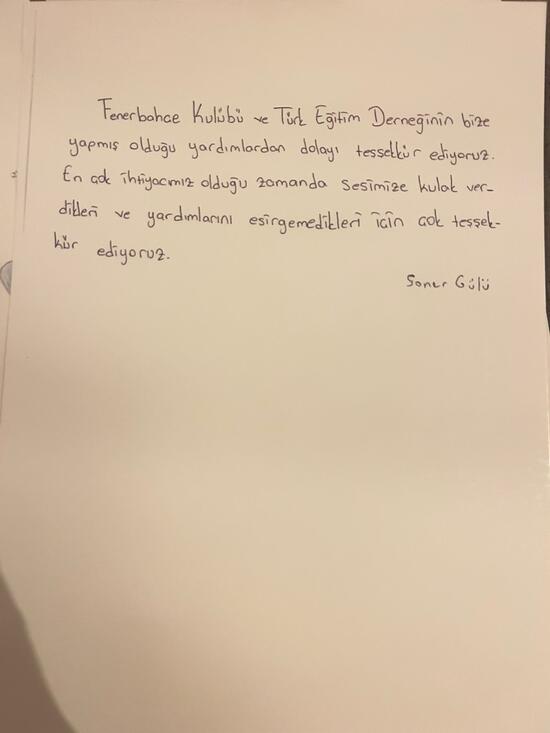 Fenerbahce Kulübü ve Türk Eğitim Derneğinin bize
yapmış olduğu yardımlardan dolayı tessekkür ediyoruz.
En cok ihtiyacımız olduğu zamanda sesimize kulak ver-
dikleri ve yardımlarını esirgemedikleri icin cok tessek-
kür ediyoruz.
Soner Gülü